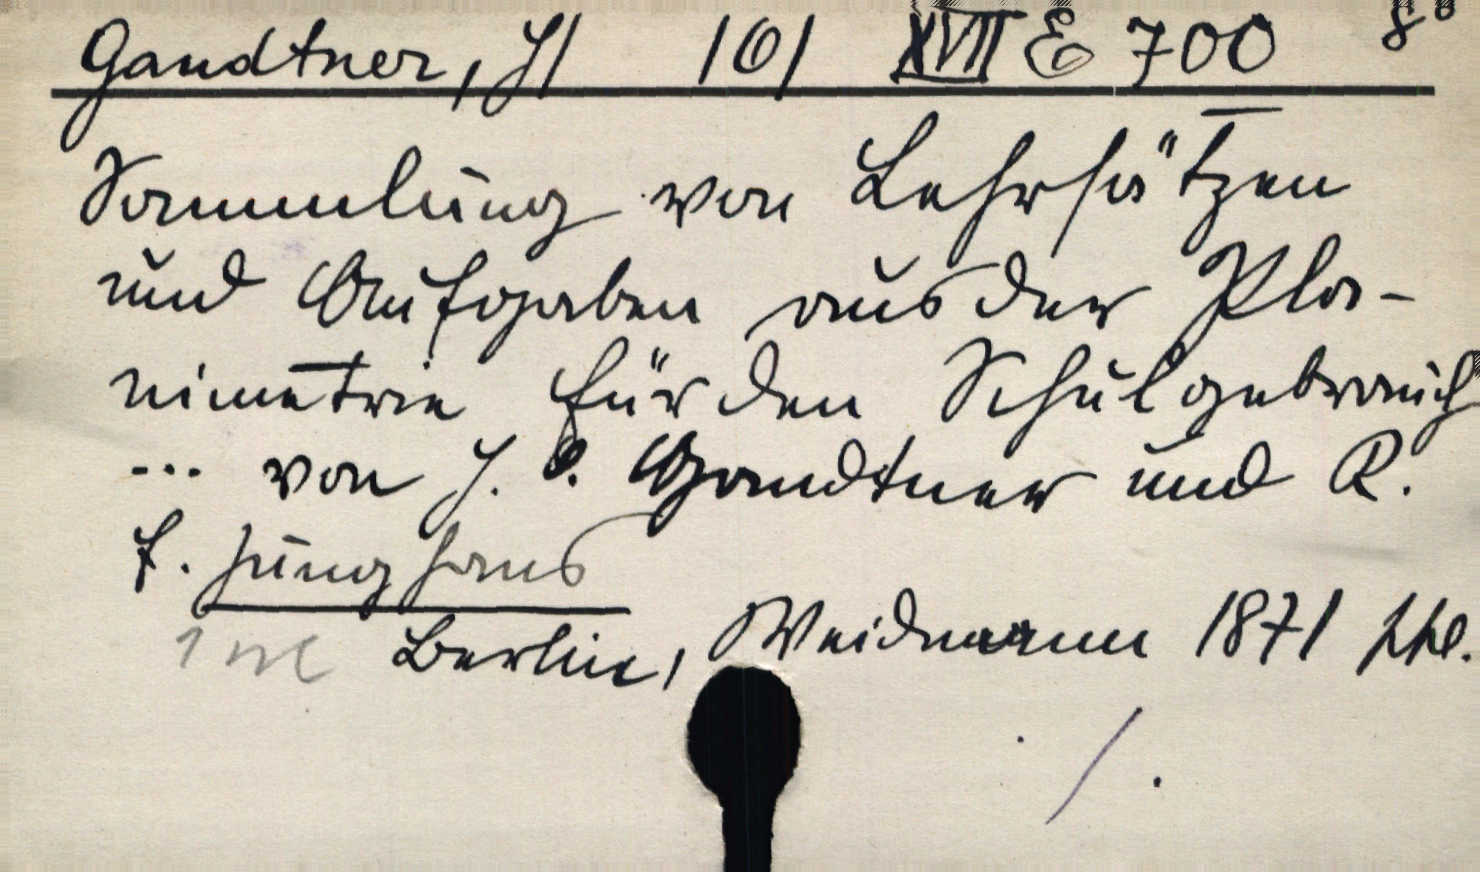 Gandtner, J/ /O/ XVII E 700 8°
Sammlung von Lehrsätzen
und Aufgaben aus der Pla-
nimetrie für den Schulgebrauch
... von J. O. Gandtner und R.
F. Junghans
Berlin, Weidmann 1871